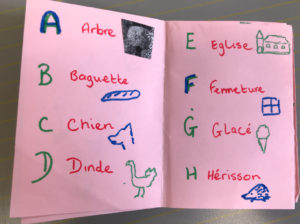 A Arbre
B Baguette
C Chien
D Dinde
E Eglise
F Fermeture
G Glacé
H Hérisson